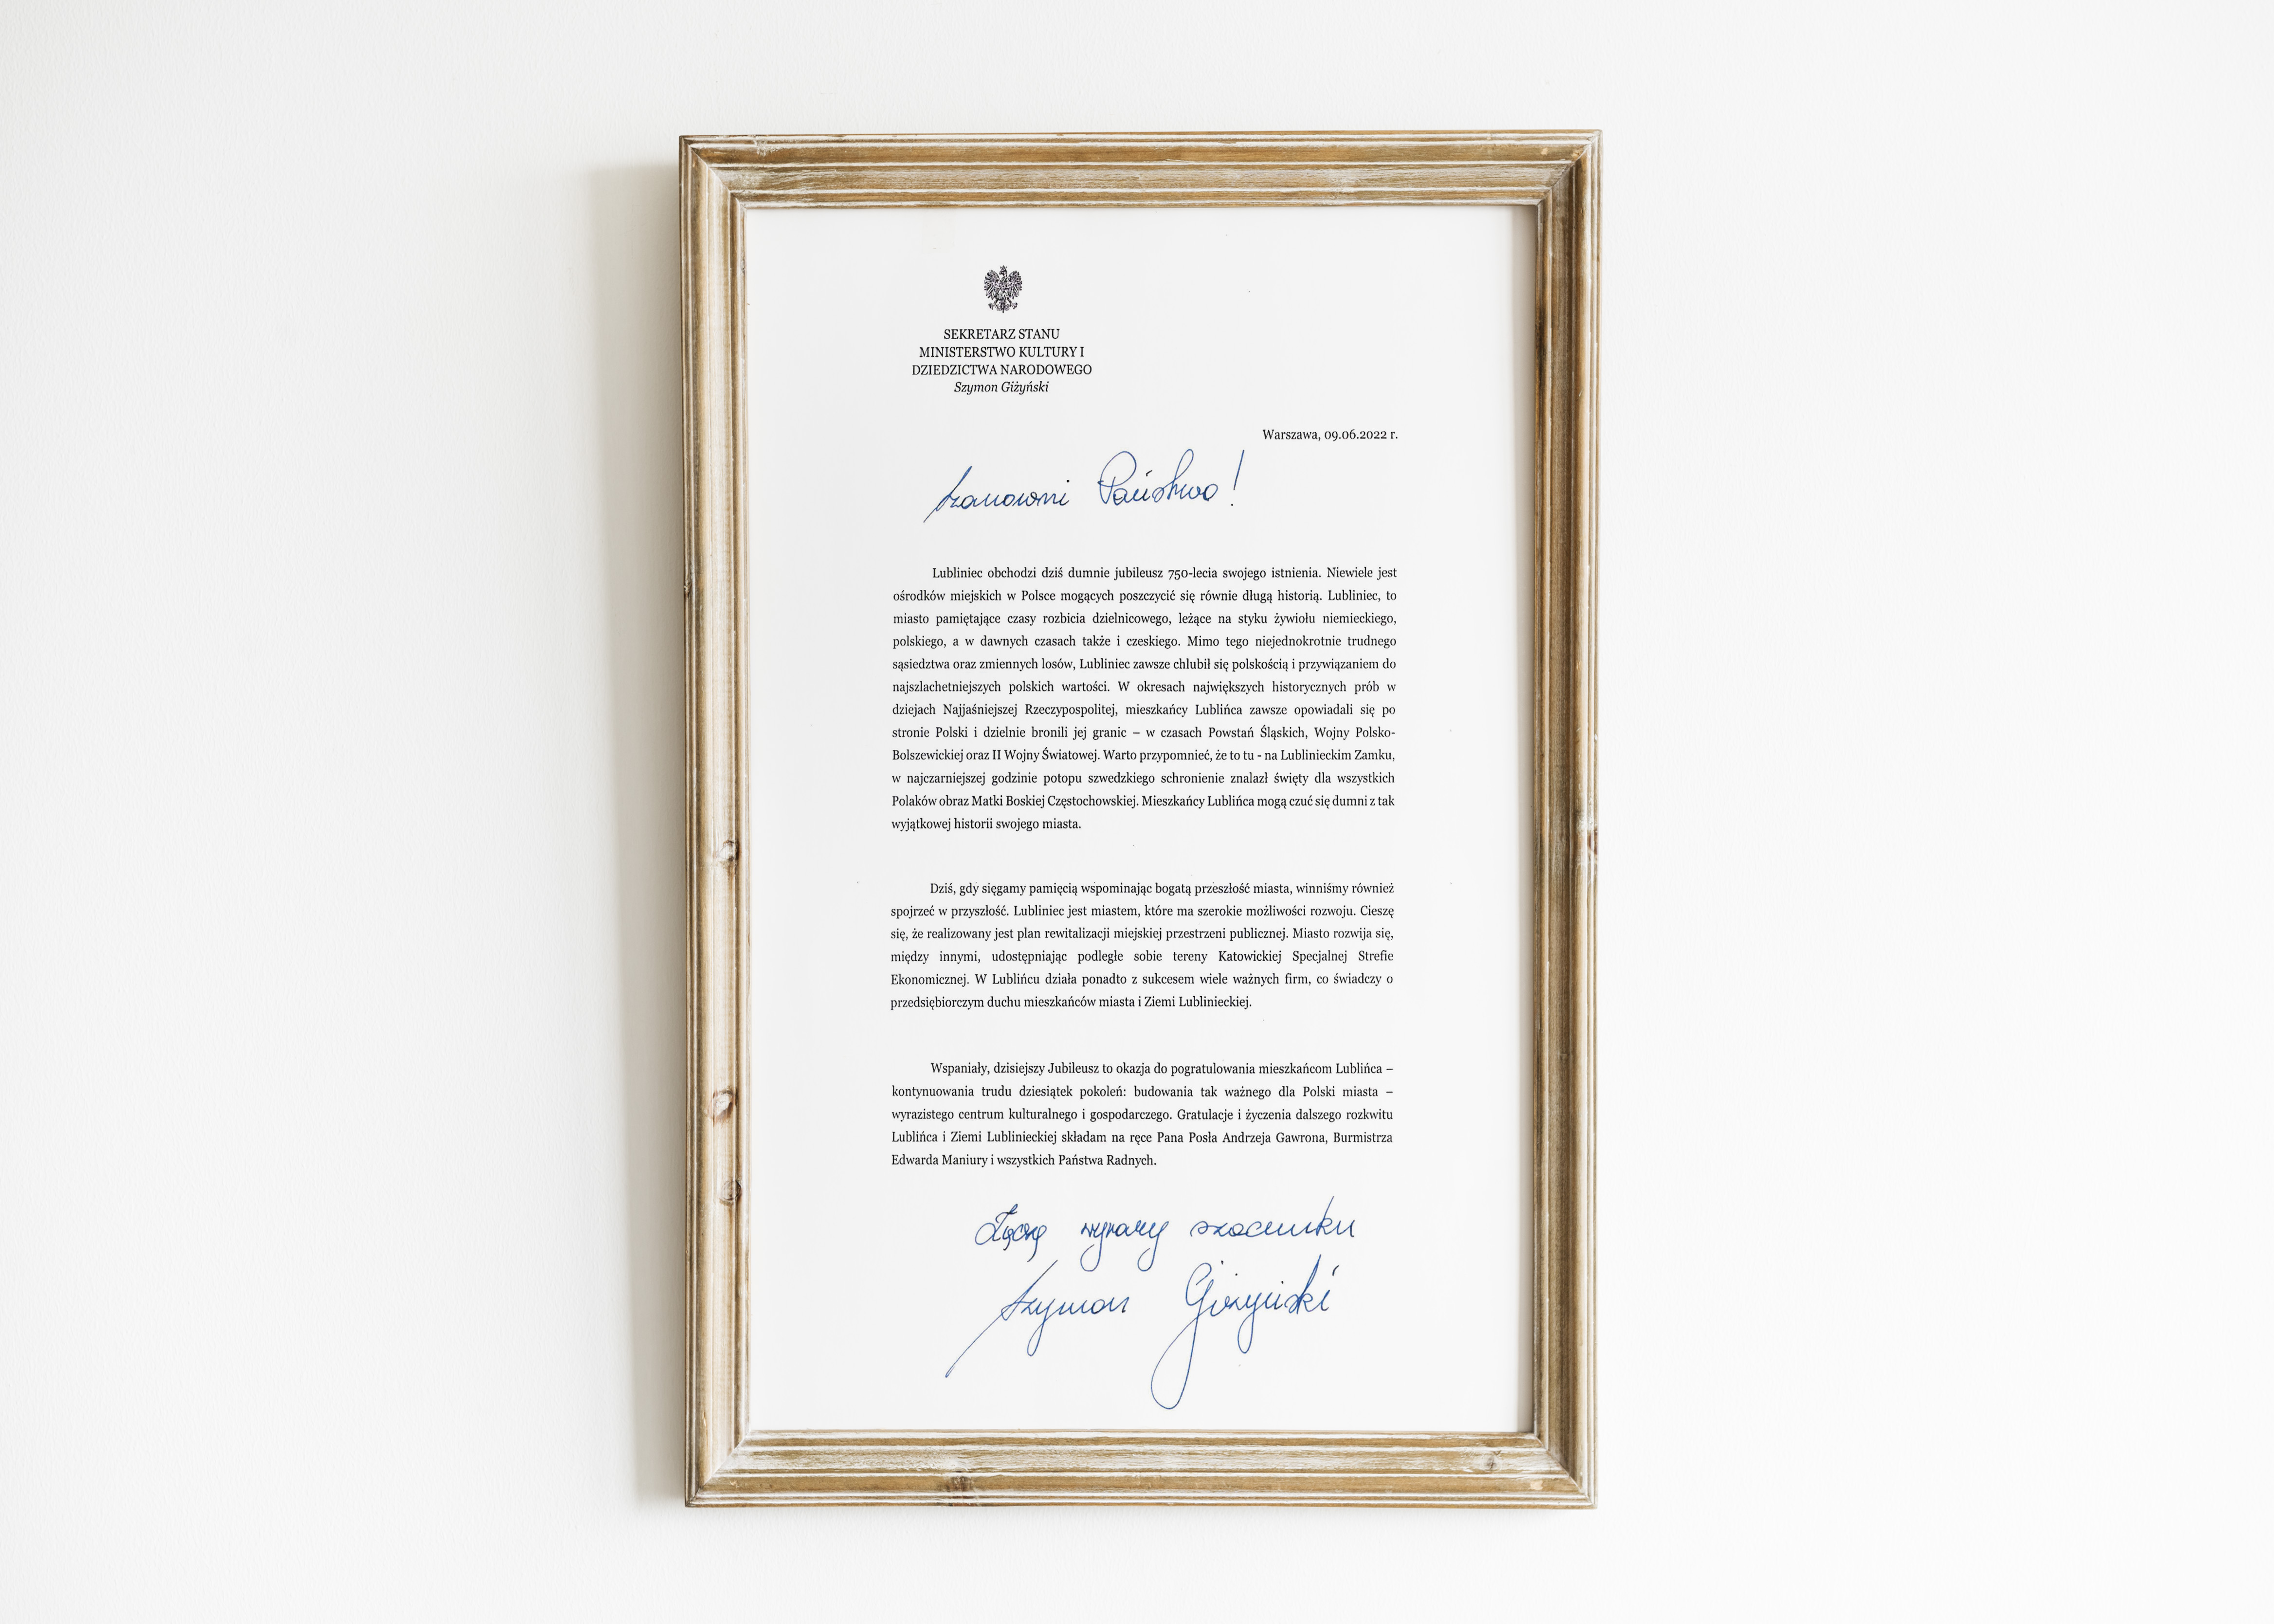 SEKRETARZ STANU
MINISTERSTWO KULTURY I
DZIEDZICTWA NARODOWEGO
Szymon Giżyński
Warszawa, 09.06.2022 r.
Szanowni Państwo!
Lubliniec obchodzi dziś dumnie jubileusz 750-lecia swojego istnienia. Niewiele jest
ośrodków miejskich w Polsce mogących poszczycić się równie długą historią. Lubliniec, to
miasto pamiętające czasy rozbicia dzielnicowego, leżące na styku żywiołu niemieckiego,
polskiego, a w dawnych czasach także i czeskiego. Mimo tego niejednokrotnie trudnego
sąsiedztwa oraz zmiennych losów, Lubliniec zawsze chlubił się polskością i przywiązaniem do
najszlachetniejszych polskich wartości. W okresach największych historycznych prób w
dziejach Najjaśniejszej Rzeczypospolitej, mieszkańcy Lublińca zawsze opowiadali się po
stronie Polski i dzielnie bronili jej granic – w czasach Powstań Śląskich, Wojny Polsko-
Bolszewickiej oraz II Wojny Światowej. Warto przypomnieć, że to tu - na Lublinieckim Zamku,
w najczarniejszej godzinie potopu szwedzkiego schronienie znalazł święty dla wszystkich
Polaków obraz Matki Boskiej Częstochowskiej. Mieszkańcy Lublińca mogą czuć się dumni z tak
wyjątkowej historii swojego miasta.
Dziś, gdy sięgamy pamięcią wspominając bogatą przeszłość miasta, winniśmy również
spojrzeć w przyszłość. Lubliniec jest miastem, które ma szerokie możliwości rozwoju. Cieszę
się, że realizowany jest plan rewitalizacji miejskiej przestrzeni publicznej. Miasto rozwija się,
między innymi, udostępniając podległe sobie tereny Katowickiej Specjalnej Strefie
Ekonomicznej. W Lublińcu działa ponadto z sukcesem wiele ważnych firm, co świadczy o
przedsiębiorczym duchu mieszkańców miasta i Ziemi Lublinieckiej.
Wspaniały, dzisiejszy Jubileusz to okazja do pogratulowania mieszkańcom Lublińca –
kontynuowania trudu dziesiątek pokoleń: budowania tak ważnego dla Polski miasta –
wyrazistego centrum kulturalnego i gospodarczego. Gratulacje i życzenia dalszego rozkwitu
Lublińca i Ziemi Lublinieckiej składam na ręce Pana Posła Andrzeja Gawrona, Burmistrza
Edwarda Maniury i wszystkich Państwa Radnych.
Łączę wyrazy szacunku
Szymon Giżyński